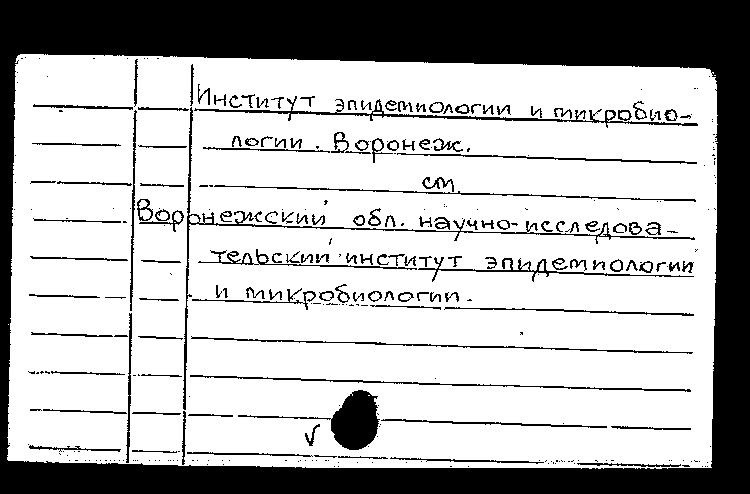 Институт эпидемиологии и микробио-
логии. Воронеж.
см.
Воронежский обл. научно-исследова-
тельский институт эпидемиологии
и микробиологии.